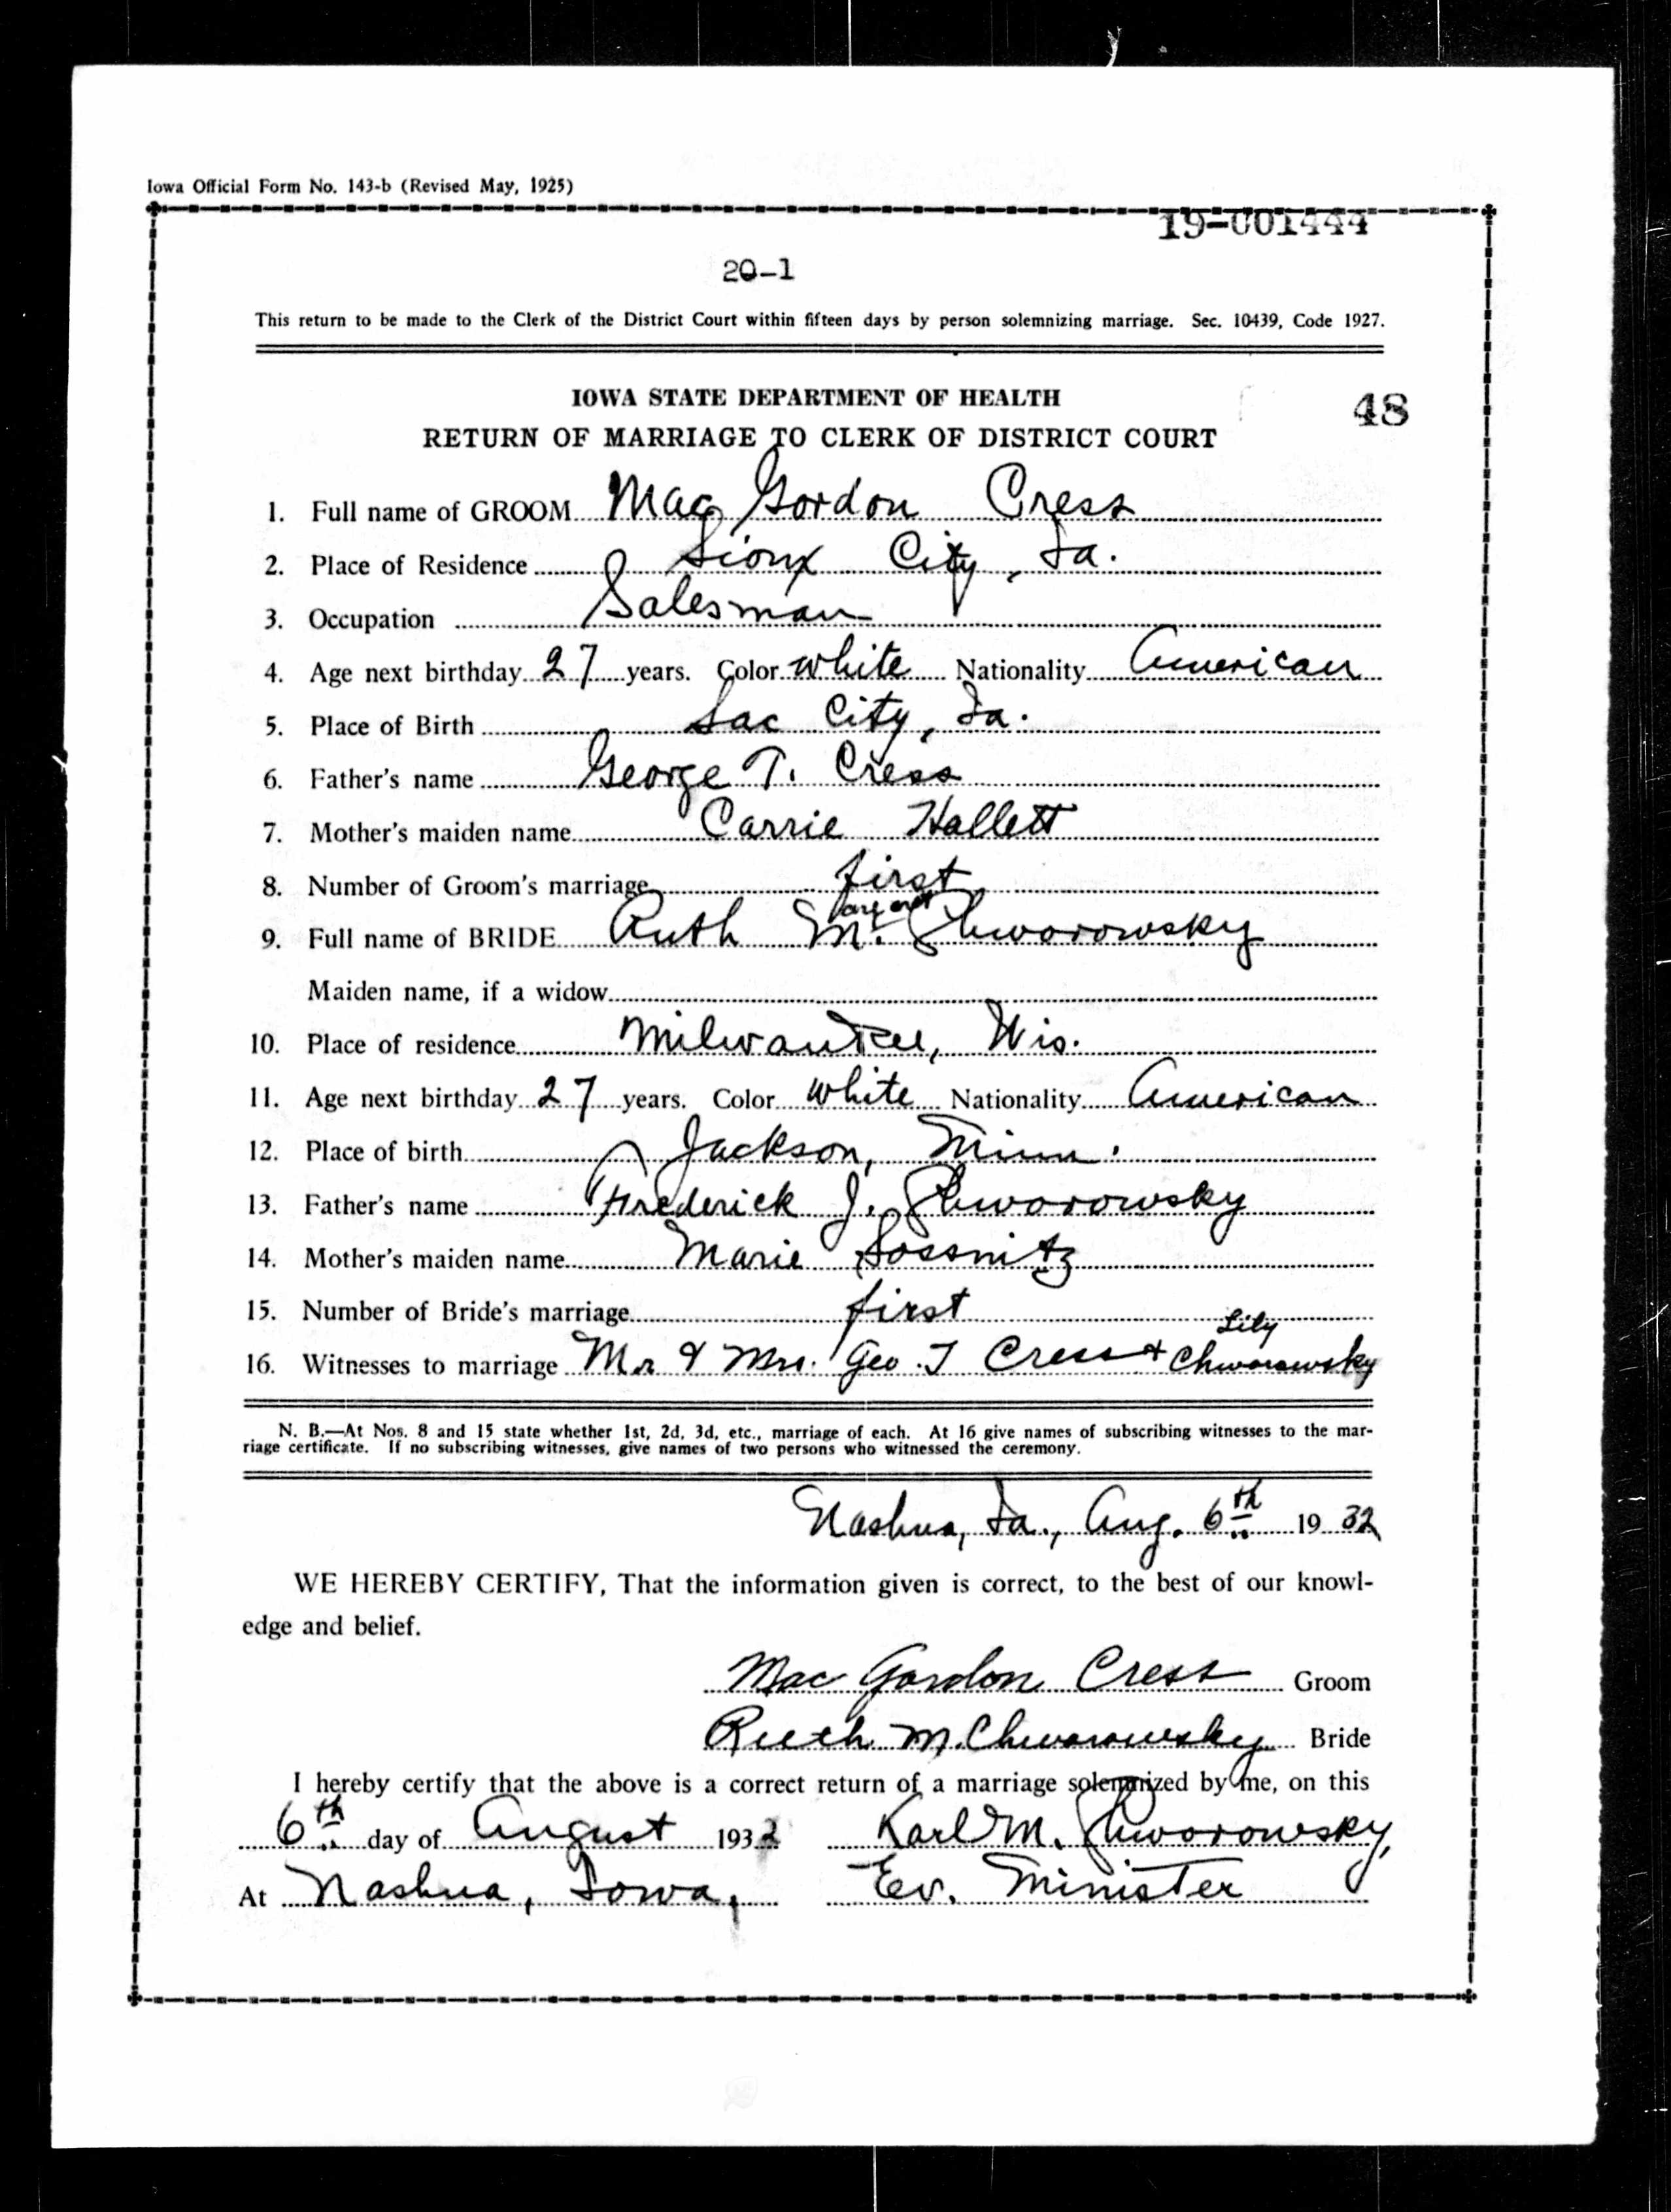 Iowa Official Form No. 143-b (Revised May, 1925)
19-001444
20-1
This return to be made to the Clerk of the District Court within fifteen days by person solemnizing marriage. Sec. 10439, Code 1927.
IOWA STATE DEPARTMENT OF HEALTH
48
RETURN OF MARRIAGE TO CLERK OF DISTRICT COURT
1. Full name of GROOM Mac Gordon Cress
2. Place of Residence Sioux City, Ia.
3. Occupation Salesman
4. Age next birthday 27 years. Color white Nationality American
5. Place of Birth Sac City, Ia.
6. Father's name George T. Cress
7. Mother's maiden name Carrie Hallett
8. Number of Groom's marriage first
argaret
9. Full name of BRIDE Ruth M. Chworowsky
Maiden name, if a widow
10. Place of residence Milwaukee, Wis.
11. Age next birthday 27 years. Color white Nationality American
12. Place of birth Jackson, Minn.
13. Father's name Frederick J. Chworowsky
14. Mother's maiden name Marie Sossnitz
15. Number of Bride's marriage first
Lily
16. Witnesses to marriage Mr & Mrs. Geo. T Cress + Chworowsky
N. B.—At Nos. 8 and 15 state whether 1st, 2d, 3d, etc., marriage of each. At 16 give names of subscribing witnesses to the mar-
riage certificate. If no subscribing witnesses, give names of two persons who witnessed the ceremony.
Nashua, Ia., Aug. 6th 1932
WE HEREBY CERTIFY, That the information given is correct, to the best of our knowl-
edge and belief.
Mac Gordon Cress Groom
Ruth M. Chworowsky Bride
I hereby certify that the above is a correct return of a marriage solemnized by me, on this
6th day of August 1932 Karl M. Chworowsky,
At Nashua, Iowa, Ev. Minister